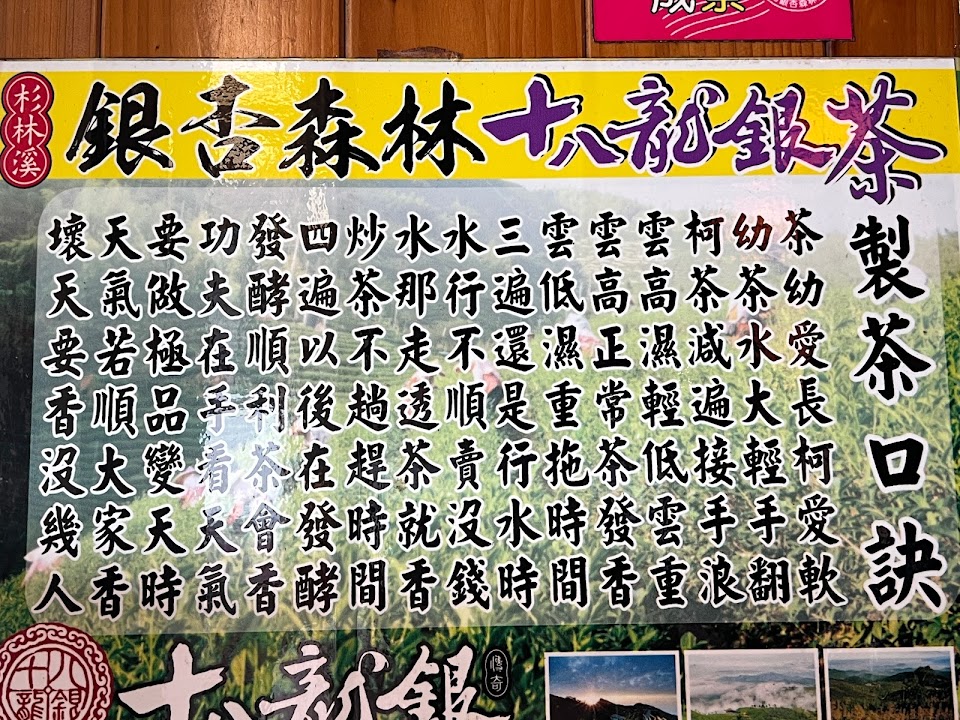 杉林溪
銀杏森林十八龍銀茶
製茶口訣
茶幼愛長柯愛軟
幼茶水大輕手翻
柯茶減遍接手浪
雲高濕輕低雲重
雲高正常茶發香
雲低濕重拖時間
三遍還是行水時
水行不順賣沒錢
水那走透茶就香
炒茶不趟趕時間
四遍以後在發酵
發酵順利茶會香
功夫在手看天氣
要做極品變天時
天氣若順大家香
壞天要香沒幾人
十八龍銀
十八龍銀
傳奇